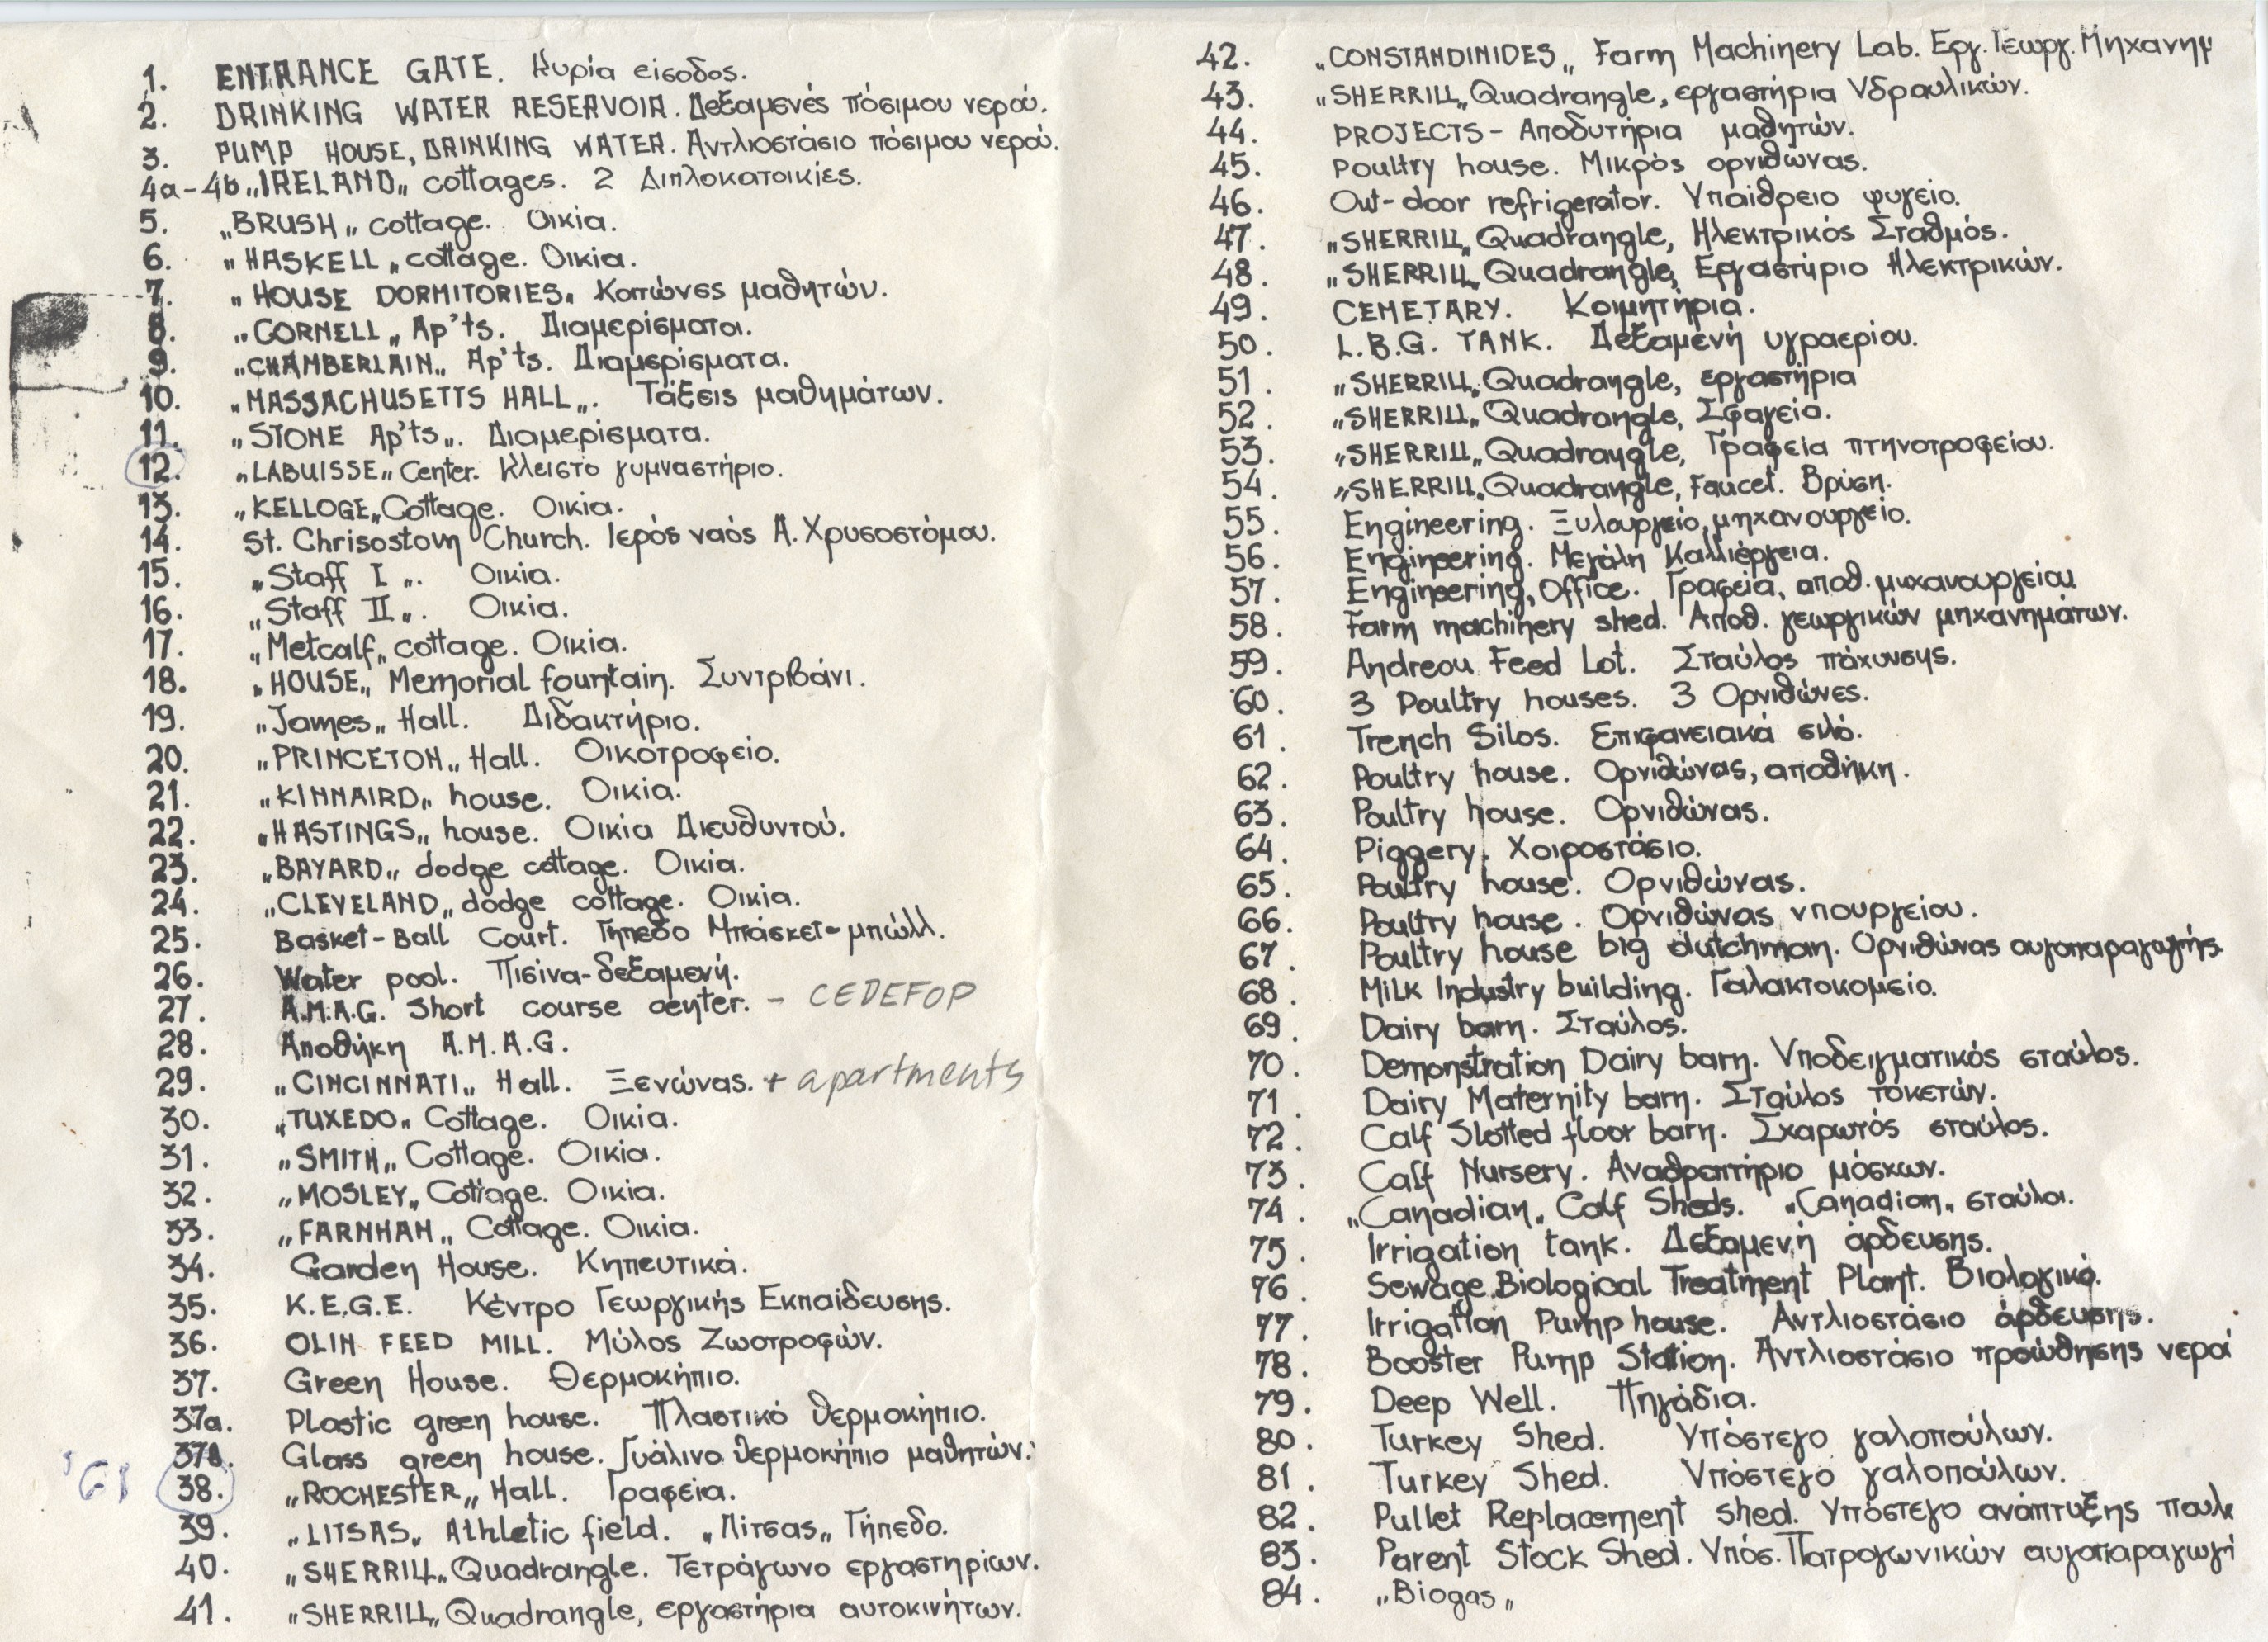 1. ENTRANCE GATE. Κυρία είσοδος.
2. DRINKING WATER RESERVOIR. Δεξαμενές πόσιμου νερού.
3. PUMP HOUSE, DRINKING WATER. Αντλιοστάσιο πόσιμου νερού.
4a-4b „IRELAND„ cottages. 2 Διπλοκατοικίες.
5. „BRUSH„ cottage. Οικία.
6. „HASKELL„ cottage. Οικία.
7. „HOUSE DORMITORIES„ Κοιτώνες μαθητών.
8. „CORNELL„ Ap'ts. Διαμερίσματα.
9. „CHAMBERLAIN„ Ap'ts. Διαμερίσματα.
10. „MASSACHUSETTS HALL„. Τάξεις μαθημάτων.
11. „STONE Ap'ts„. Διαμερίσματα.
12. „LABUISSE„ Center. Κλειστό γυμναστήριο.
13. „KELLOGE„ Cottage. Οικία.
14. St. Chrisostom Church. Ιερός ναός Α. Χρυσοστόμου.
15. „Staff I„. Οικία.
16. „Staff II„. Οικία.
17. „Metcalf„ cottage. Οικία.
18. „HOUSE„ Memorial fountain. Συντριβάνι.
19. „James„ Hall. Διδακτήριο.
20. „PRINCETON„ Hall. Οικοτροφείο.
21. „KINNAIRD„ house. Οικία.
22. „HASTINGS„ house. Οικία Διευθυντού.
23. „BAYARD„ dodge cottage. Οικία.
24. „CLEVELAND„ dodge cottage. Οικία.
25. Basket-Ball Court. Γήπεδο Μπάσκετ-μπώλλ.
26. Water pool. Πισίνα-δεξαμενή.
27. A.M.A.G. Short course center. - CEDEFOP
28. Αποθήκη A.M.A.G.
29. „CINCINNATI„ Hall. Ξενώνας. + apartments
30. „TUXEDO„ Cottage. Οικία.
31. „SMITH„ Cottage. Οικία.
32. „MOSLEY„ Cottage. Οικία.
33. „FARNHAM„ Cottage. Οικία.
34. Garden House. Κηπευτικά.
35. K.E.G.E. Κέντρο Γεωργικής Εκπαίδευσης.
36. OLIN FEED MILL. Μύλος Ζωοτροφών.
37. Green House. Θερμοκήπιο.
37a. Plastic green house. Πλαστικό θερμοκήπιο.
37β. Glass green house. Γυάλινο θερμοκήπιο μαθητών.
'61 38. „ROCHESTER„ Hall. Γραφεία.
39. „LITSAS„ Athletic field. „Λίτσας„ Γήπεδο.
40. „SHERRILL„ Quadrangle. Τετράγωνο εργαστηρίων.
41. „SHERRILL„ Quadrangle, εργαστήρια αυτοκινήτων.
42. „CONSTANDINIDES„ Farm Machinery Lab. Εργ. Γεωργ. Μηχανημ
43. „SHERRILL„ Quadrangle, εργαστήρια Υδραυλικών.
44. PROJECTS - Αποδυτήρια μαθητών.
45. Poultry house. Μικρός ορνιθώνας.
46. Out-door refrigerator. Υπαίθρειο ψυγείο.
47. „SHERRILL„ Quadrangle, Ηλεκτρικός Σταθμός.
48. „SHERRILL„ Quadrangle, Εργαστήριο Ηλεκτρικών.
49. CEMETARY. Κοιμητήρια.
50. L.B.G. TANK. Δεξαμενή υγραερίου.
51. „SHERRILL„ Quadrangle, εργαστήρια
52. „SHERRILL„ Quadrangle, Σφαγείο.
53. „SHERRILL„ Quadrangle, Γραφεία πτηνοτροφείου.
54. „SHERRILL„ Quadrangle, Faucet. Βρύση.
55. Engineering. Ξυλουργείο, μηχανουργείο.
56. Engineering. Μεγάλη Καλλιέργεια.
57. Engineering, Office. Γραφεία, αποθ. μηχανουργείου
58. Farm machinery shed. Αποθ. γεωργικών μηχανημάτων.
59. Andreou Feed Lot. Σταύλος πάχυνσης.
60. 3 Poultry houses. 3 Ορνιθώνες.
61. Trench Silos. Επιφανειακά σιλό.
62. Poultry house. Ορνιθώνας, αποθήκη.
63. Poultry house. Ορνιθώνας.
64. Piggery. Χοιροστάσιο.
65. Poultry house. Ορνιθώνας.
66. Poultry house. Ορνιθώνας υπουργείου.
67. Poultry house big dutchman. Ορνιθώνας αυγοπαραγωγής.
68. Milk Industry building. Γαλακτοκομείο.
69. Dairy barn. Σταύλος.
70. Demonstration Dairy barn. Υποδειγματικός σταύλος.
71. Dairy Maternity barn. Σταύλος τοκετών.
72. Calf Slotted floor barn. Σχαρωτός σταύλος.
73. Calf Nursery. Αναθρεπτήριο μόσχων.
74. „Canadian„ Calf Sheds. „Canadian„ σταύλοι.
75. Irrigation tank. Δεξαμενή άρδευσης.
76. Sewage Biological Treatment Plant. Βιολογικό.
77. Irrigation Pump house. Αντλιοστάσιο άρδευσης.
78. Booster Pump Station. Αντλιοστάσιο προώθησης νερού
79. Deep Well. Πηγάδια.
80. Turkey Shed. Υπόστεγο γαλοπούλων.
81. Turkey Shed. Υπόστεγο γαλοπούλων.
82. Pullet Replacement shed. Υπόστεγο ανάπτυξης πουλ
83. Parent Stock Shed. Υπόσ. Πατρογωνικών αυγοπαραγωγή
84. „Biogas„